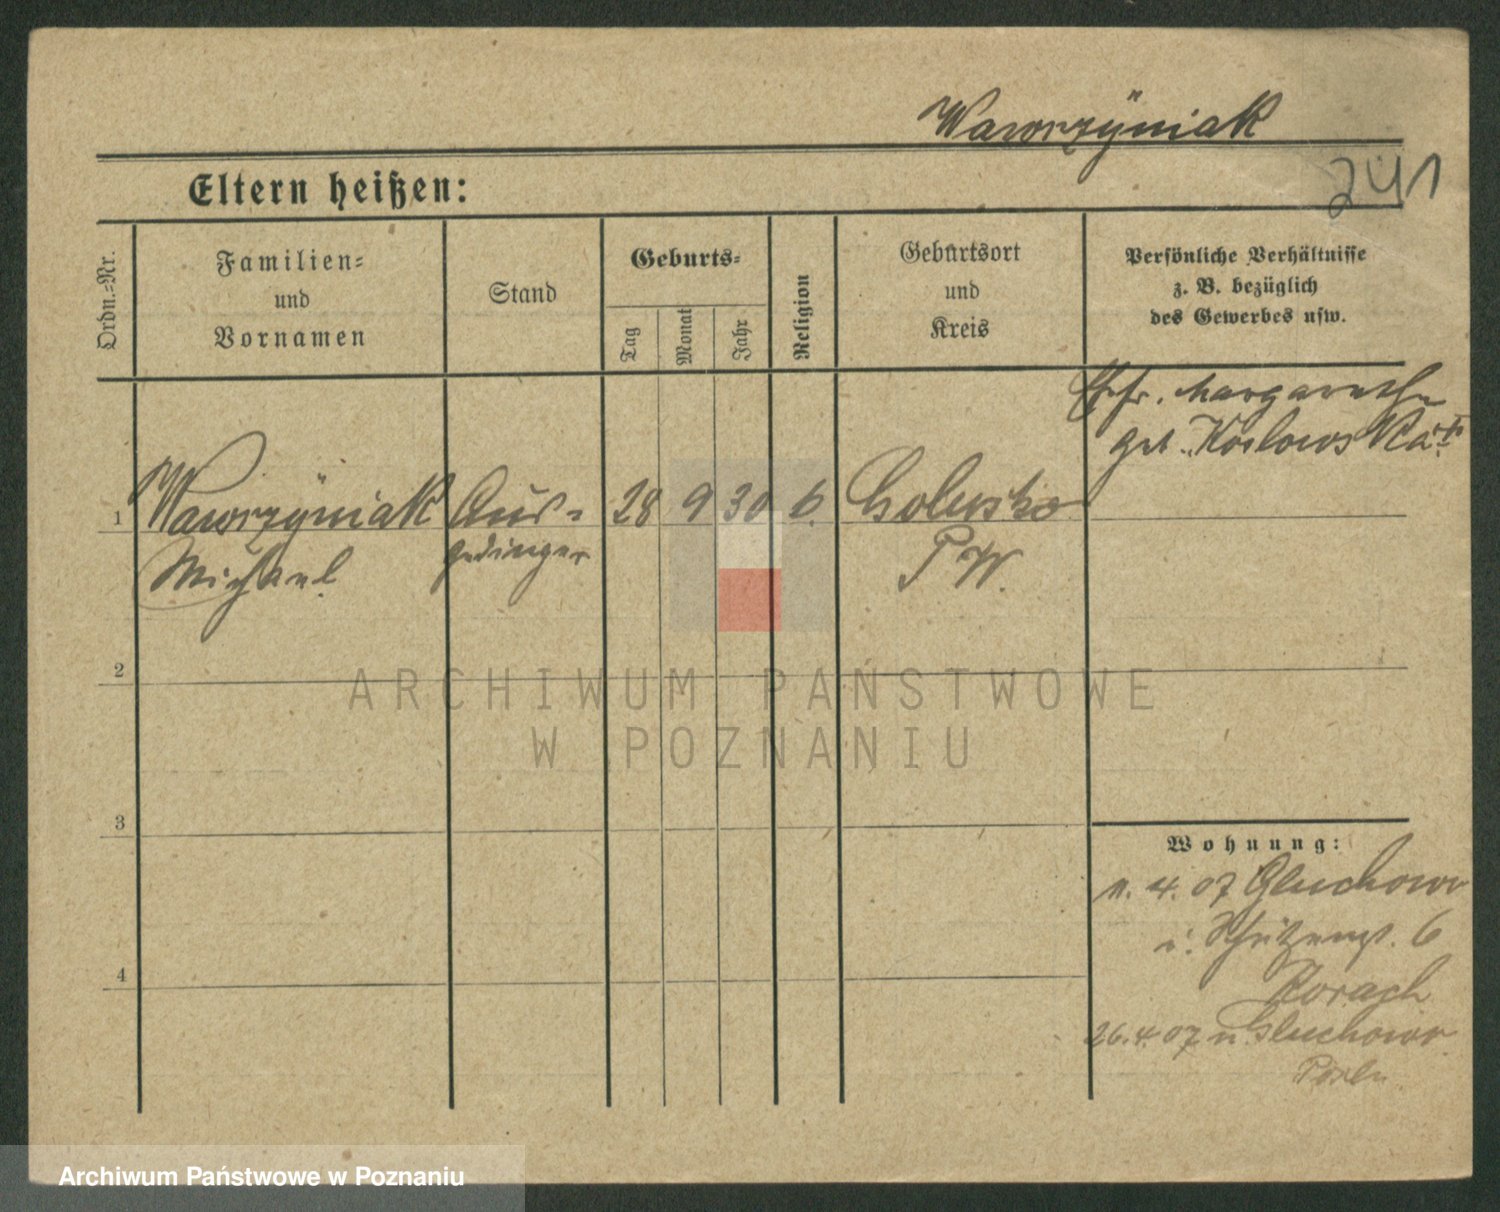 Wawrzÿniak
241
Eltern heißen:
Ordn.-Nr.
Familien-
und
Vornamen
Stand
Geburts-
Tag
Monat
Jahr
Religion
Geburtsort
und
Kreis
Persönliche Verhältnisse
z. B. bezüglich
des Gewerbes usw.
Ehfr. Margarethe
geb. Koslowska
1 Wawrzÿniak Aus- 28 9 30 k. Golusko
Michael gedinger P W.
2
3
4
Wohnung:
4. 07 Gluchowo
Schützenst. 6
26.4.07 n Gluchowo
ARCHIWUM PAŃSTWOWE
W POZNANIU
Archiwum Państwowe w Poznaniu